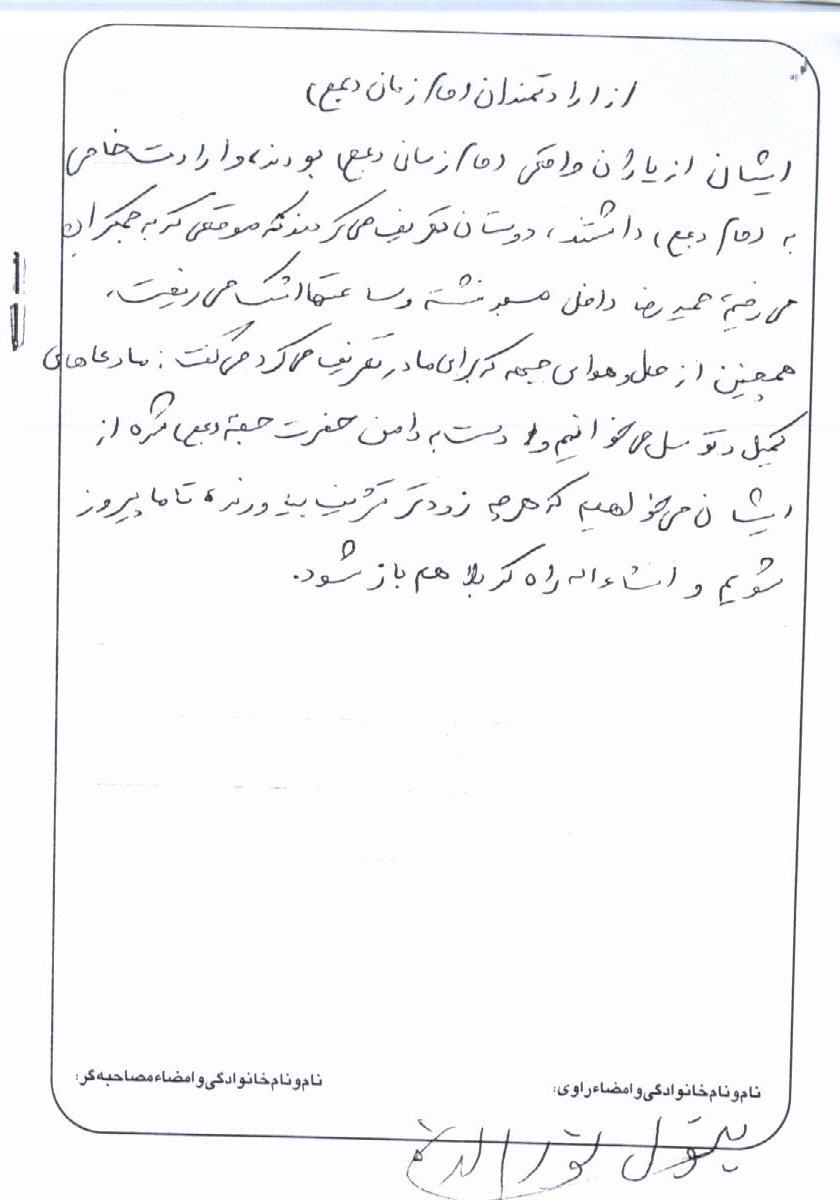 از ارادتمندان امام زمان (عج)
ایشان از یاران واقعی امام زمان (عج) بودند، و ارادت خاصی
به امام (عج) داشتند، دوستان تعریف می کردند که موقعی که به جمکران
می رفتیم حمید رضا داخل مسجد نشسته و ساعتها اشک می ریخت،
همچنین از حال و هوای جبهه که برای مادر تعریف می کرد می گفت: ما دعاهای
کمیل و توسل می خوانیم و دست به دامن حضرت حجة (عج) شده از
ایشان می خواهیم که هر چه زودتر تشریف بیاورند، تا ما پیروز
شویم و انشاءاله راه کربلا هم باز شود.
نام و نام خانوادگی و امضاء راوی:
نام و نام خانوادگی و امضاء مصاحبه گر:
بتول